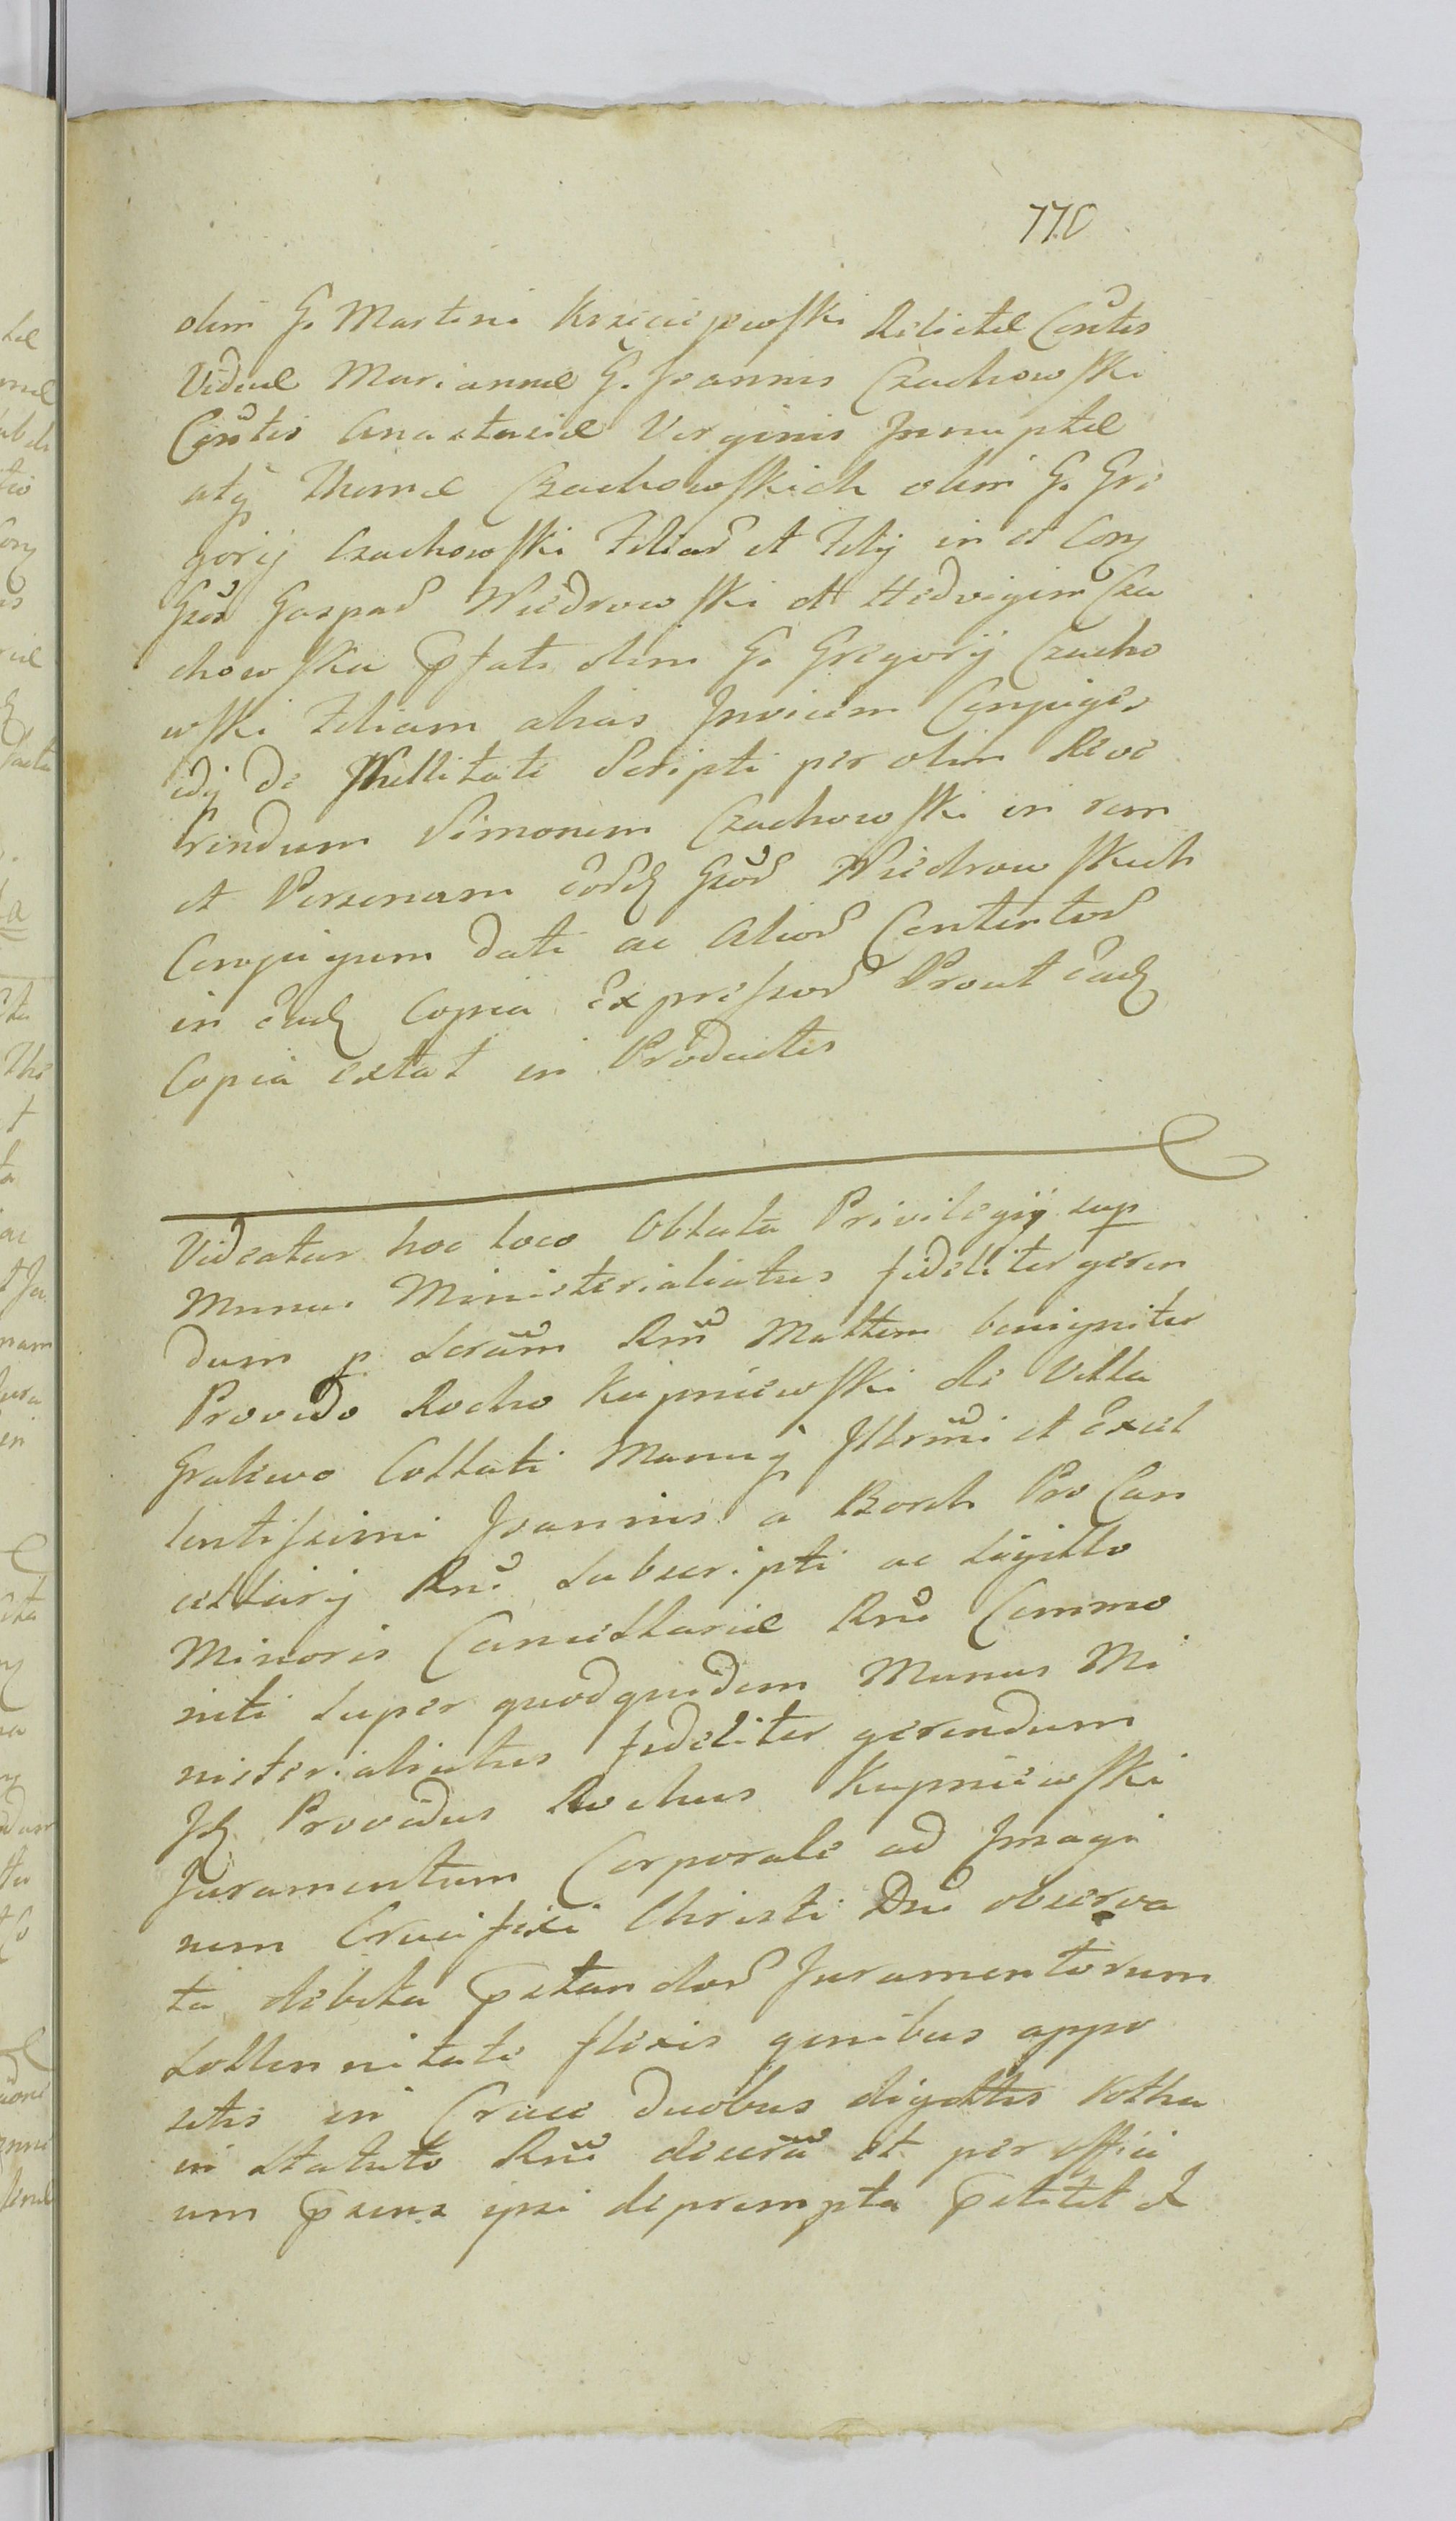 770
olim G. Martini Krzeciejewski Relictæ Consortis
Viduæ Mariannæ G. Joannis Czachowski
Consortis Anastasiæ Virginis Innuptæ
atq Thomæ Czachowskich olim G. Gre
gorij Czachowski Filiar et Filij in et Conq
Gsos Gaspar Wiedrowski et Hedvigim Cza
chowska pfati olim G. Gregorij Czacho
wski Filiam alias Invicem Conjuges
idq de Nullitate Scripti per olim Reve
rendum Simonem Czachowski in rem
et Personam eord Gsor Wiedrowskich
Conjugum dati ac Alior Contentor
in ead Copia Expressor Prout Ead
Copia extat in Productis
Videatur hoc loco Oblata Privilegij sup
Munus Ministerialiatus fideliter geren
dum p Scram Rm Mattem benigniter
Provido Rocho Kupniewski de Villa
Gralewo Collati Manuq Illrmi et Excel
lentissimi Joannis a Borch Pro Can
cellarij Rni Subscripti ac Sigillo
Minoris Cancellariæ Rni Commo
niti Super quodquidem Munus Mi
nisterialiatus fideliter gerendum
Id Providus Rochus Kupniewski
Juramentum Corporale ad Imagi
nem Crucifixi Christi Dni observa
ta debita pstandor Juramentorum
Sollennitate flexis genibus appo
sitis in Cruce duobus digittis Rotha
in Statuto Rni descra et per Offici
um psens ipsi deprompta pstitit &